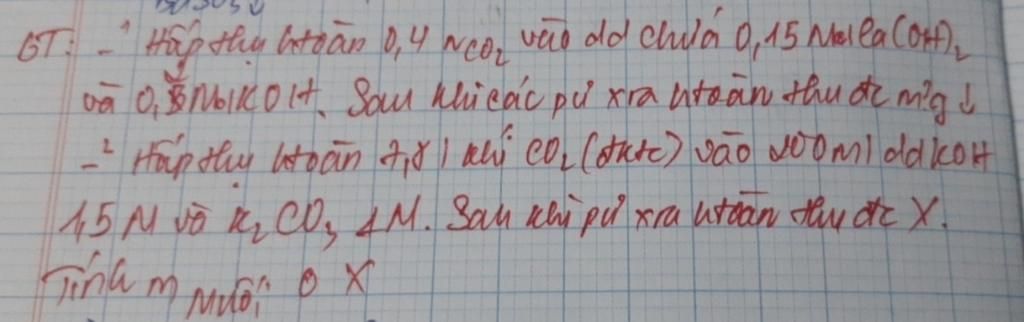 BT: -¹ Hấp thụ htoàn 0,4 nCO₂ vào dd chứa 0,15 Mol Ca(OH)₂
và 0, Mol KOH. Sau khi các pứ xra htoàn thu đc m?g ↓
-² Hấp thụ htoàn 7,8 l khí CO₂ (đktc) vào 200ml dd KOH
1,5 M và K₂CO₃ 1M. Sau khi pứ xra htoàn thu đc X.
Tính m muối ở X